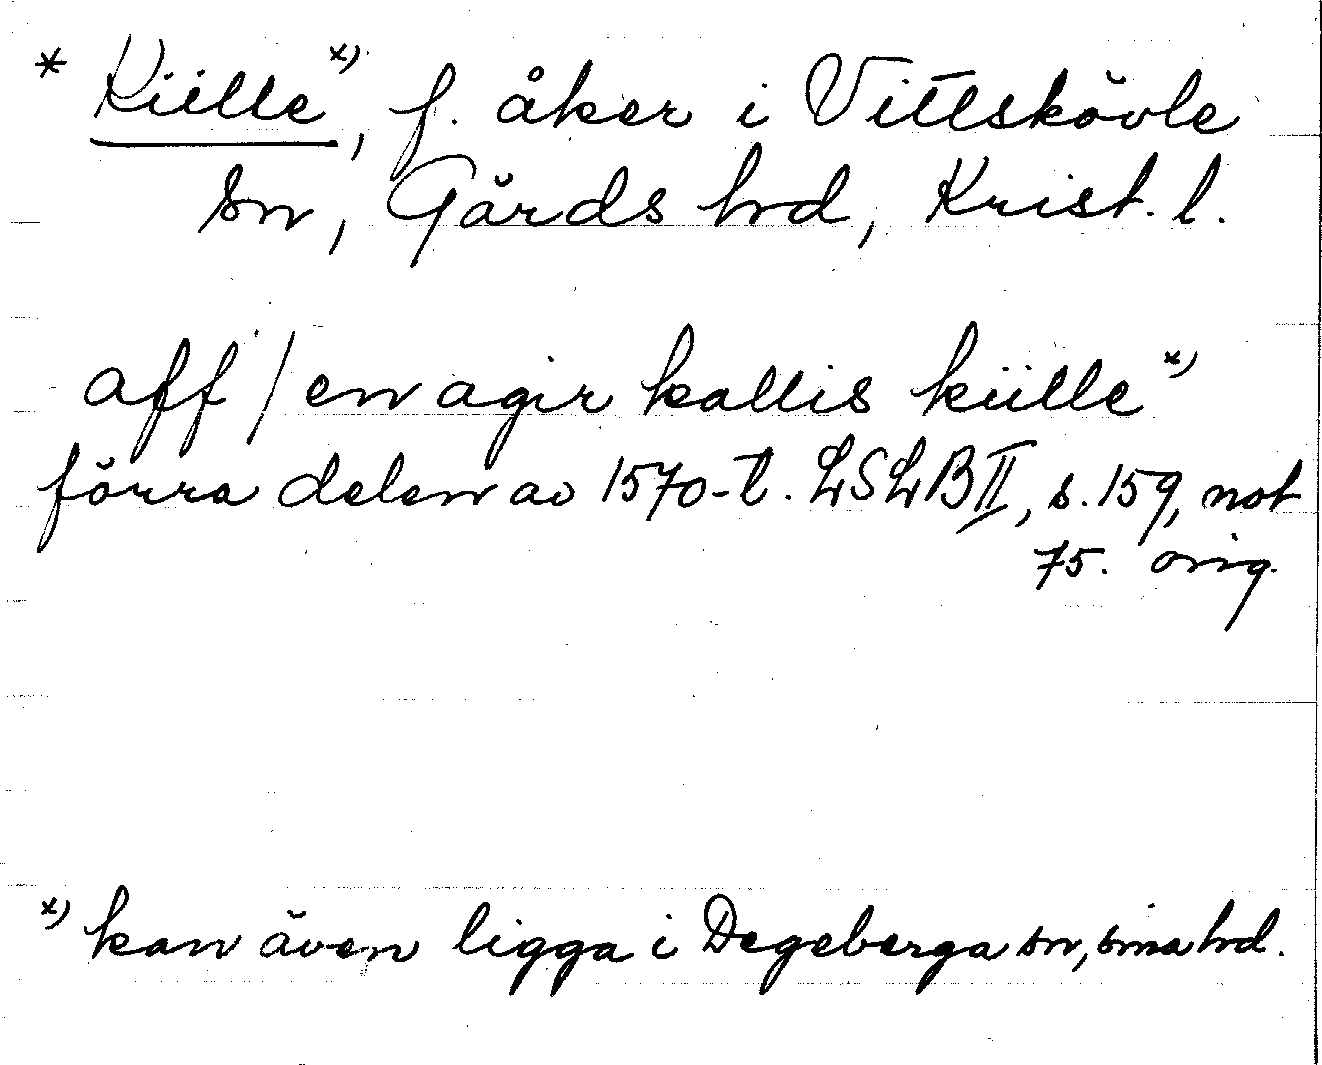 * Külle x), f. åker i Vittskövle
sn, Gärds hd, Krist. l.
aff / en agir kallis külle x)
förra delen av 1570-t. LSLB II, s. 159, not
75. orig.
x) kan även ligga i Degeberga sn, sma hd.